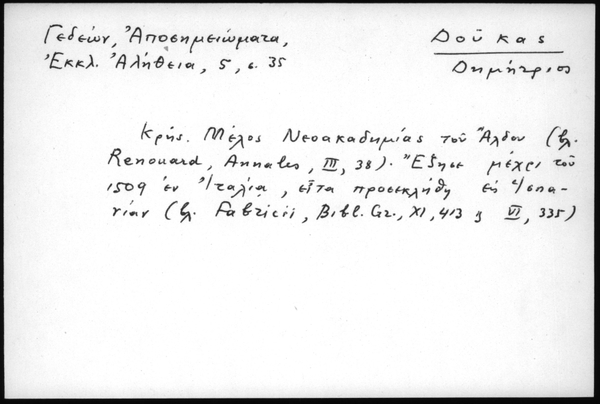 Γεδεών, Ἀποσημειώματα,
Ἐκκλ. Ἀλήθεια, 5, σ. 35
Δούκας
Δημήτριος
Κρής. Μέλος Νεοακαδημίας τοῦ Ἄλδου (βλ.
Renouard, Annales, III, 38). Ἔζησε μέχρι τοῦ
1509 ἐν Ἰταλίᾳ, εἶτα προσεκλήθη εἰς Ἱσπα-
νίαν (βλ. Fabricii, Bibl. Gr., XI, 413 ἢ VI, 335)